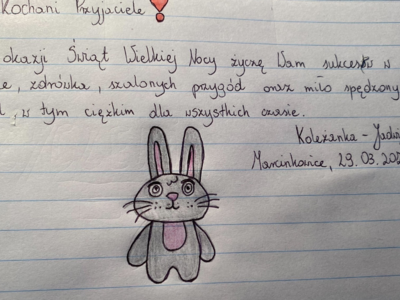 Kochani Przyjaciele
okazji Świąt Wielkiej Nocy życzę Wam sukcesów w
, zdrówka, szalonych przygód oraz miło spędzony
, w tym ciężkim dla wszystkich czasie.
Koleżanka -
Marcinkowice, 29.03.202